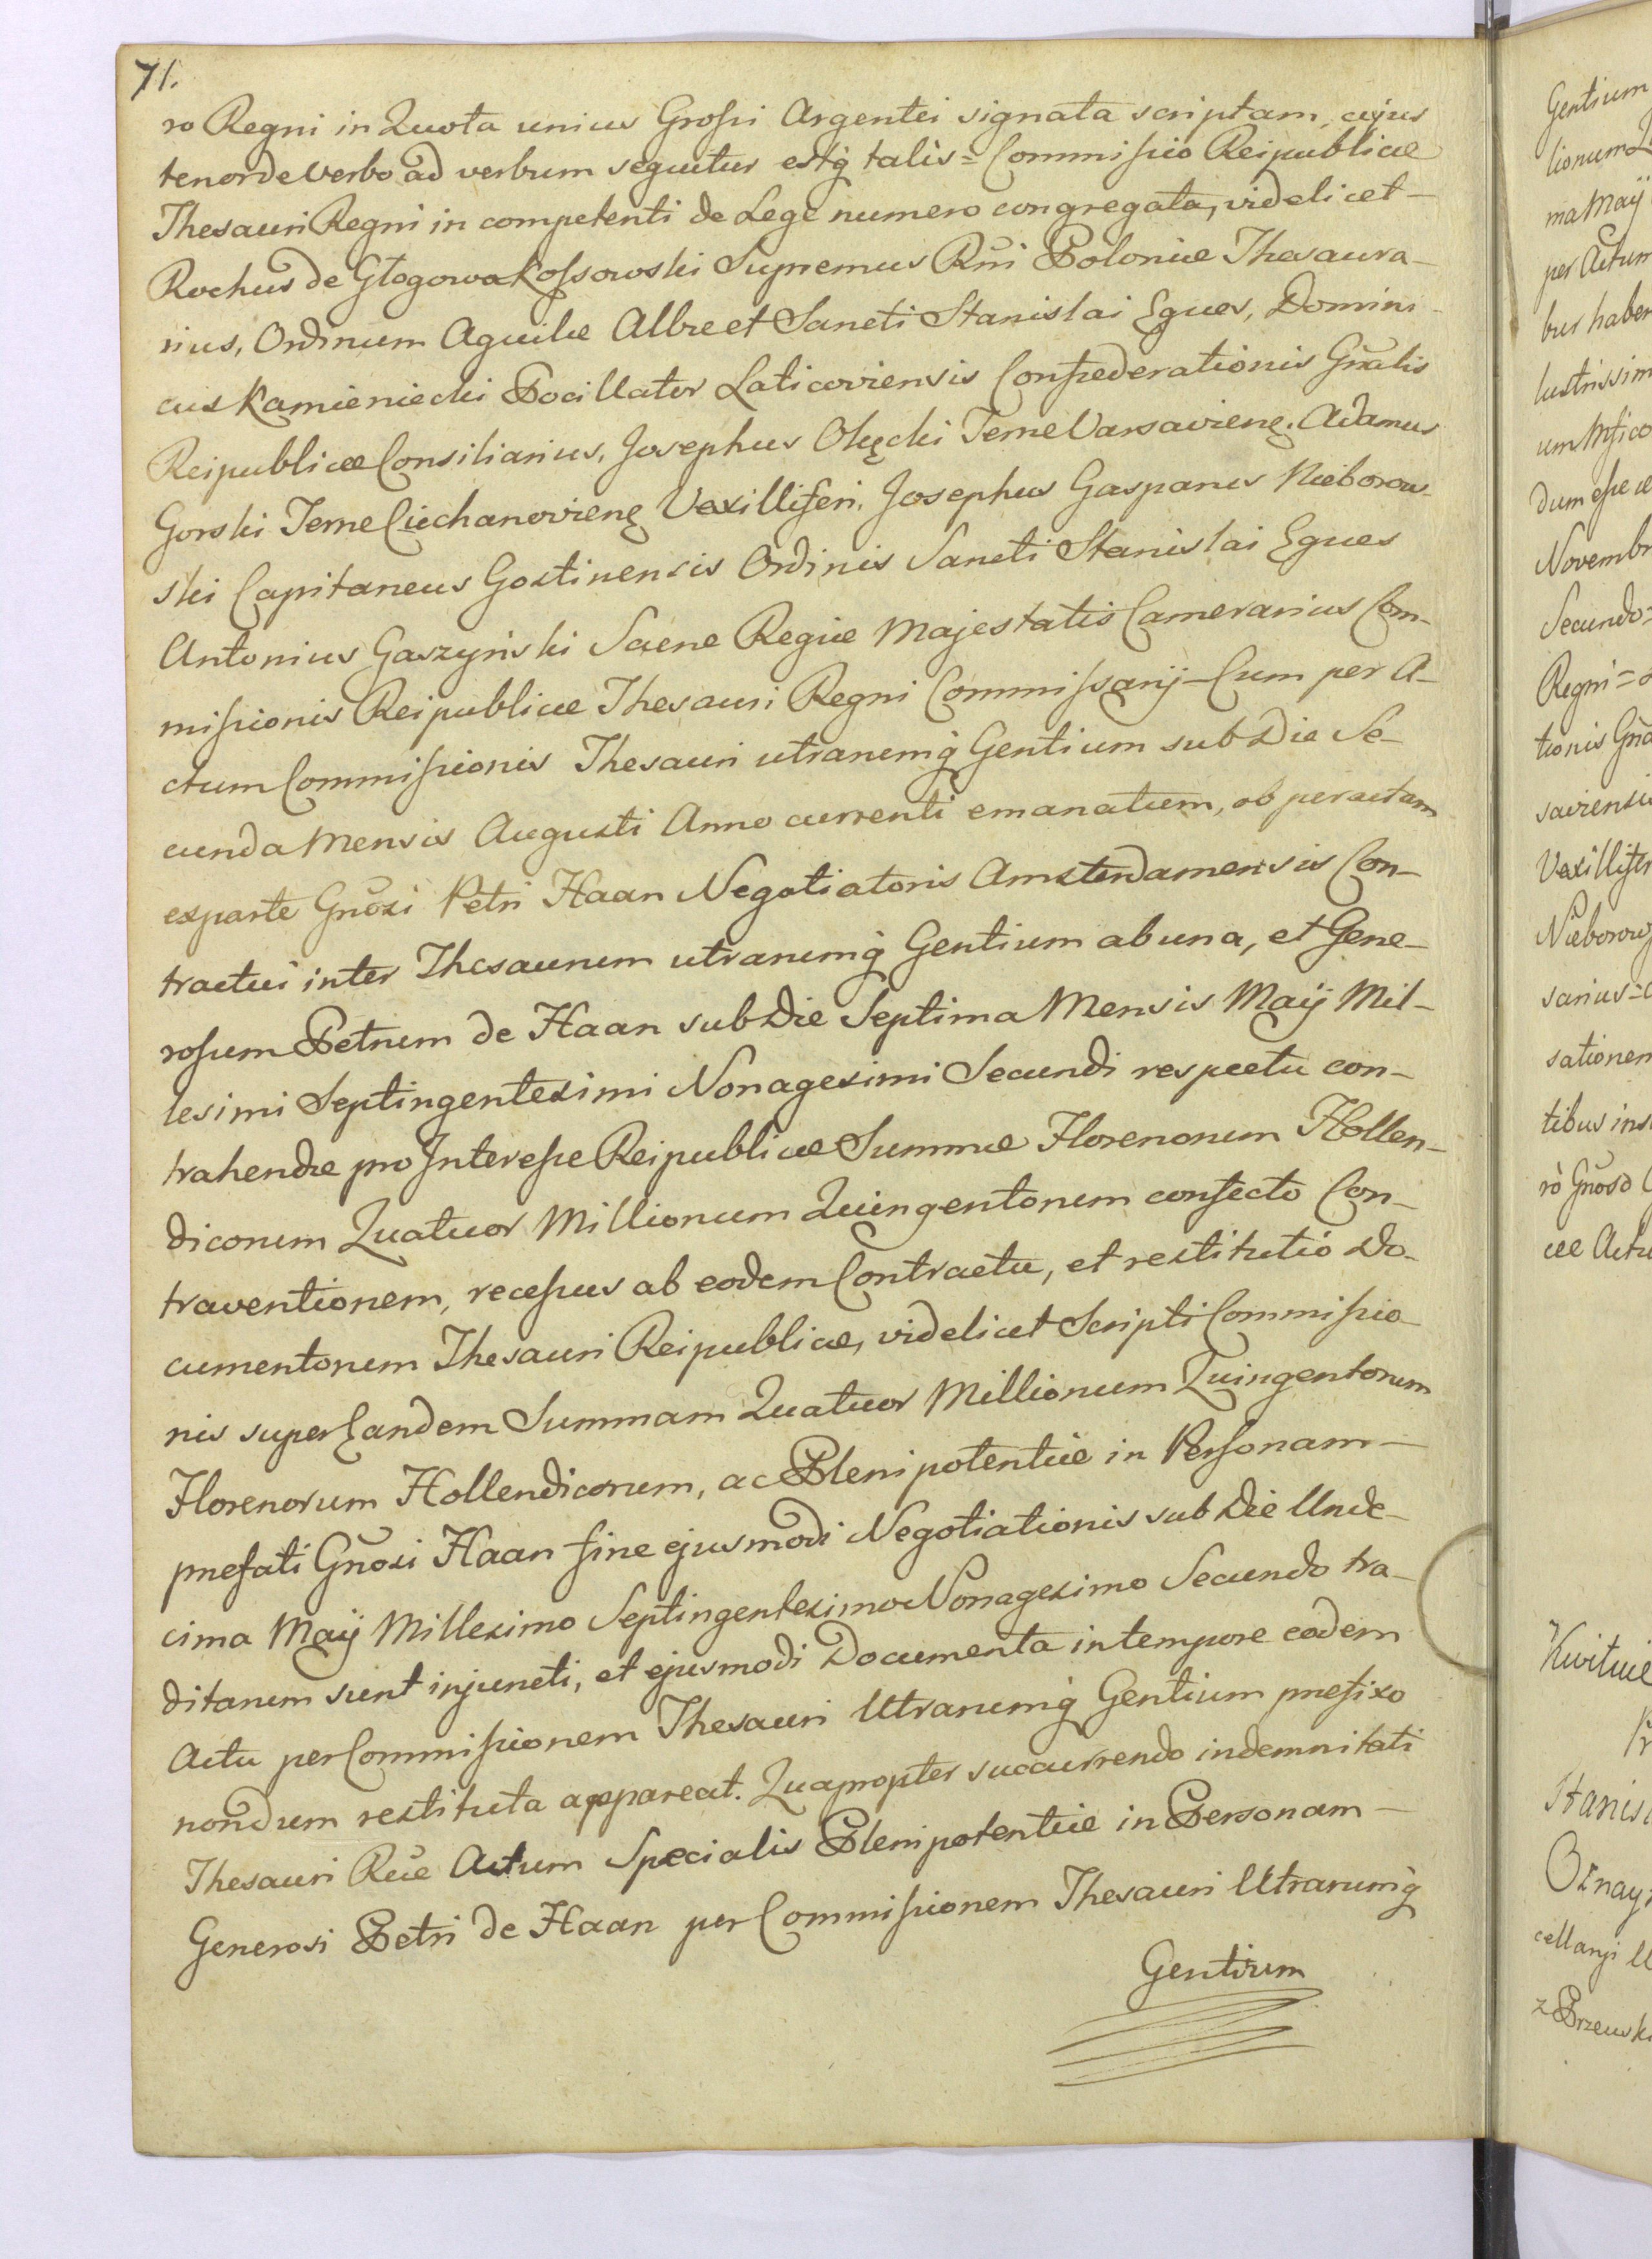 71.
ro Regni in Quota unius Grossi Argentei signata scriptam, cujus
tenor de verbo ad verbum sequitur estq̀ talis = Commissio Reipublicæ
Thesauri Regni in competenti de Lege numero congregata, videlicet —
Rochus de Głogowa Kossowski Supremus Rñi Poloniæ Thesaura-
rius, Ordinum Aquilæ Albæ et Sancti Stanislai Eques, Domini-
cus Kamieniecki Pocillator Laticoviensis Confœderationis Gñalis
Reipublicæ Consiliarius, Josephus Olęcki Terræ Varsavieng. Adamus
Gorski Terræ Ciechanovieng Vexilliferi, Josephus Gasparus Nieborow-
ski Capitaneus Gostinensis Ordinis Sancti Stanislai Eques
Antonius Gaszyński Sacræ Regiæ Majestatis Camerarius Com-
missionis Reipublicæ Thesauri Regni Commissarij — Cum per A-
ctum Commissionis Thesauri utrarumq̀ Gentium sub Die Se-
cunda Mensis Augusti Anno currenti emanatum, ob peractam
ex parte Gñosi Petri Haan Negotiatoris Amsterdamensis Con-
tractui inter Thesaurum utrarumq̀ Gentium ab una, et Gene-
rosum Petrum de Haan sub Die Septima Mensis Maÿ Mil-
lesimi Septingentesimi Nonagesimi Secundi respectu con-
trahendæ pro Interesse Reipublicæ Summæ Florenorum Hollen-
dicorum Quatuor Millionum Quingentorum confecto Con-
traventionem, recessus ab eodem Contractu, et restitutió Do-
cumentorum Thesauri Reipublicæ, videlicet Scripti Commissio-
nis super Eandem Summam Quatuor Millionum Quingentorum
Florenorum Hollendicorum, ac Plenipotentiæ in Personam —
præfati Gñosi Haan fine ejusmodi Negotiationis sub Die Unde-
cima Maÿ Millesimo Septingentesimo Nonagesimo Secundo tra-
ditarum sunt injuncti, et ejusmodi Documenta in tempore eodem
Actu per Commissionem Thesauri Utrarumq̀ Gentium præfixo
nondum restituta appareat. Quapropter succurrendo indemnitati
Thesauri Rũæ Actum Specialis Plenipotentiæ in Personam —
Generosi Petri de Haan per Commissionem Thesauri Utrarumq̀
Gentium
Gentium
ma Maÿ
per Actum
Novembr
Secundo =
Regni =
tionis Gña